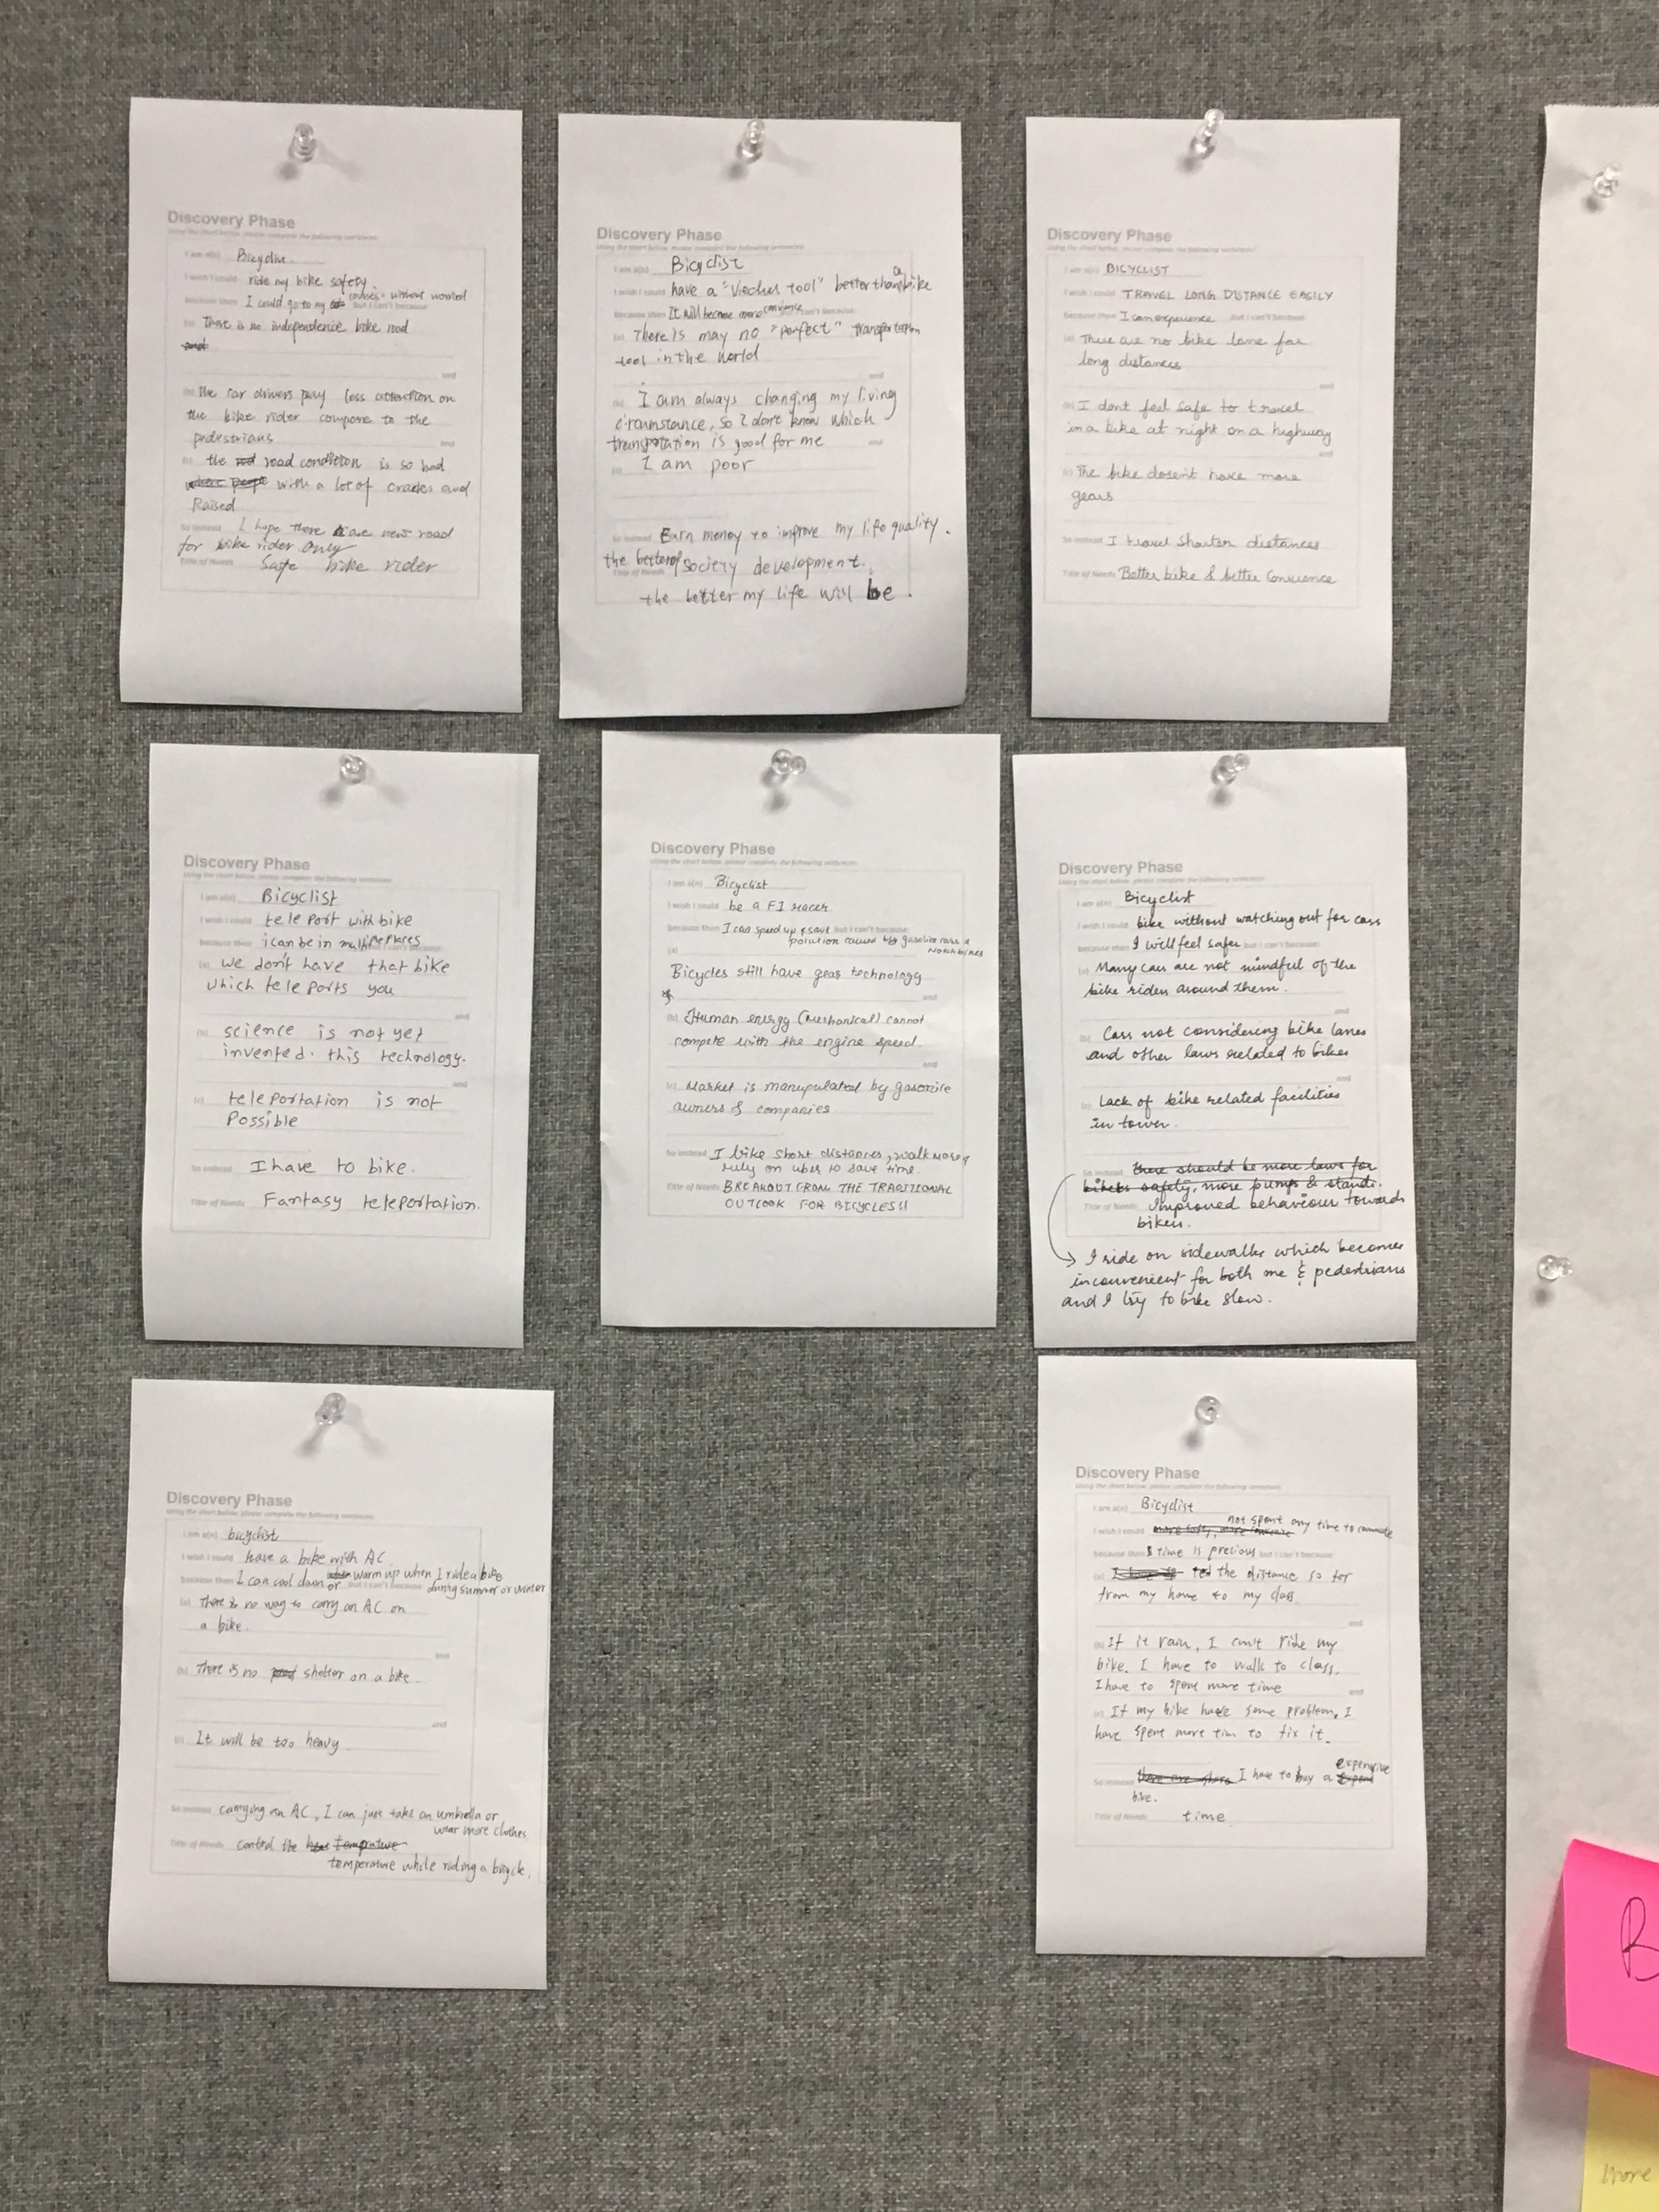 Discovery Phase
Using the chart below, please complete the following sentences:
I am a(n)
I wish I could ride my bike safety
because then I could go to my courses without worried but I can't because:
(a) There is no independence bike road
and
(b) the car drivers pay less attention on
the bike rider compare to the
pedestrians
and
(c) the road condition is so bad
with a lot of cracks and
Raised
So instead I hope there are new road
for bike rider only
Title of Needs Safe bike rider
Discovery Phase
Using the chart below, please complete the following sentences:
I am a(n) Bicyclist
I wish I could have a " tool" better than a bike
because then It will become more but I can't because:
(a) There is may no "perfect" transportation
tool in the world
and
(b) I am always changing my living
circumstance, so I don't know which
transportation is good for me
and
(c) I am poor
So instead Earn money to improve my life quality.
the better of society development.
Title of Needs
the better my life will be.
Discovery Phase
Using the chart below, please complete the following sentences:
I am a(n) BICYCLIST
I wish I could TRAVEL LONG DISTANCE EASILY
because then I can experience but I can't because:
(a) There are no bike lane for
long distances
and
(b) I dont feel safe to travel
in a bike at night on a highway
and
(c) The bike dosent have more
gears
So instead I travel shorter distances
Title of Needs Better bike & better
Discovery Phase
Using the chart below, please complete the following sentences:
I am a(n) Bicyclist
I wish I could teleport with bike
because then i can be in multiple places but I can't because:
(a) we don't have that bike
which teleports you
and
(b) science is not yet
invented. this technology.
and
(c) teleportation is not
possible
So instead I have to bike.
Title of Needs Fantasy teleportation.
Discovery Phase
Using the chart below, please complete the following sentences:
I am a(n) Bicyclist
I wish I could be a F1 racer
because then I can speed up & save but I can't because:
pollution caused by gasoline cars &
motorbikes
(a)
Bicycles still have gear technology
and
(b) Human energy (Mechanical) cannot
compete with the engine speed.
and
(c) Market is manupulated by gasonile
owners & companies
So instead I bike short distances, walk more &
rely on uber to save time.
Title of Needs BREAKOUT FROM THE TRADITIONAL
OUTLOOK FOR BICYCLES!!
Discovery Phase
Using the chart below, please complete the following sentences:
I am a(n) Bicyclist
I wish I could bike without watching out for cars
because then I will feel safer but I can't because:
(a) Many cars are not mindful of the
bike riders around them.
and
(b) Cars not considering bike lanes
and other laws related to bikes
and
(c) Lack of bike related facilities
in tower.
So instead there should be more laws for
bikers safety, more pumps & stands.
Title of Needs Improved behaviour towards
bikers.
I ride on sidewalks which becomes
inconvenient for both me & pedestrians
and I try to bike slow.
Discovery Phase
Using the chart below, please complete the following sentences:
I am a(n) bicyclist
I wish I could have a bike with AC
because then I can cool down or warm up when I ride a bike
but I can't because: during summer or winter
(a) There is no way to carry an AC on
a bike.
and
(b) There is no shelter on a bike.
and
(c) It will be too heavy
So instead carrying an AC, I can just take an umbrella or
wear more clothes.
Title of Needs control the temprature
temperature while riding a bicycle.
Discovery Phase
Using the chart below, please complete the following sentences:
I am a(n) Bicyclist
I wish I could not spent any time to commute
because then time is precious but I can't because:
(a) the distance so far
from my home to my class
and
(b) If it rain, I can't ride my
bike. I have to walk to class.
I have to spent more time
and
(c) If my bike have some problem, I
have spent more tim to fix it.
So instead I have to buy a expensive
bike.
Title of Needs time
B
more